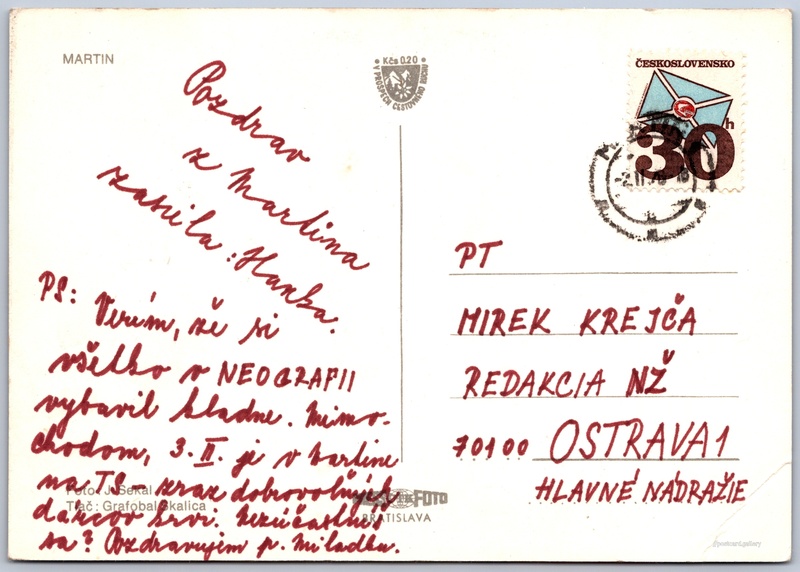 MARTIN
Kčs 0.20
V PROSPECH CESTOVNÉHO RUCHU
ČESKOSLOVENSKO
30h
Pozdrav
z Martina
zasiela: Hanka.
PS: Verím, že si
všetko v NEOGRAFII
vybavil kladne. Mimo-
chodom, 3. II. je v Martine
na TŠ - zraz dobrovoľných
dárcov krvi. Nezúčastníš
sa? Pozdravujem p. Miladku.
Foto: J. Sekal
Tlač: Grafobal Skalica
FOTO
BRATISLAVA
PT
MIREK KREJČA
REDAKCIA NŽ
70100 OSTRAVA 1
HLAVNÉ NÁDRAŽIE